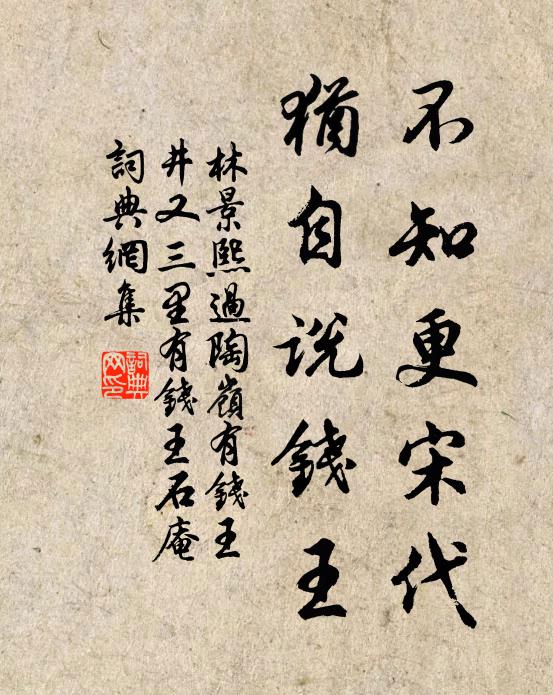 不知更宋代
猶自说錢王
林景熙過陶嶺有錢王
井又三里有錢王石庵
詞典網集
詞典
网印